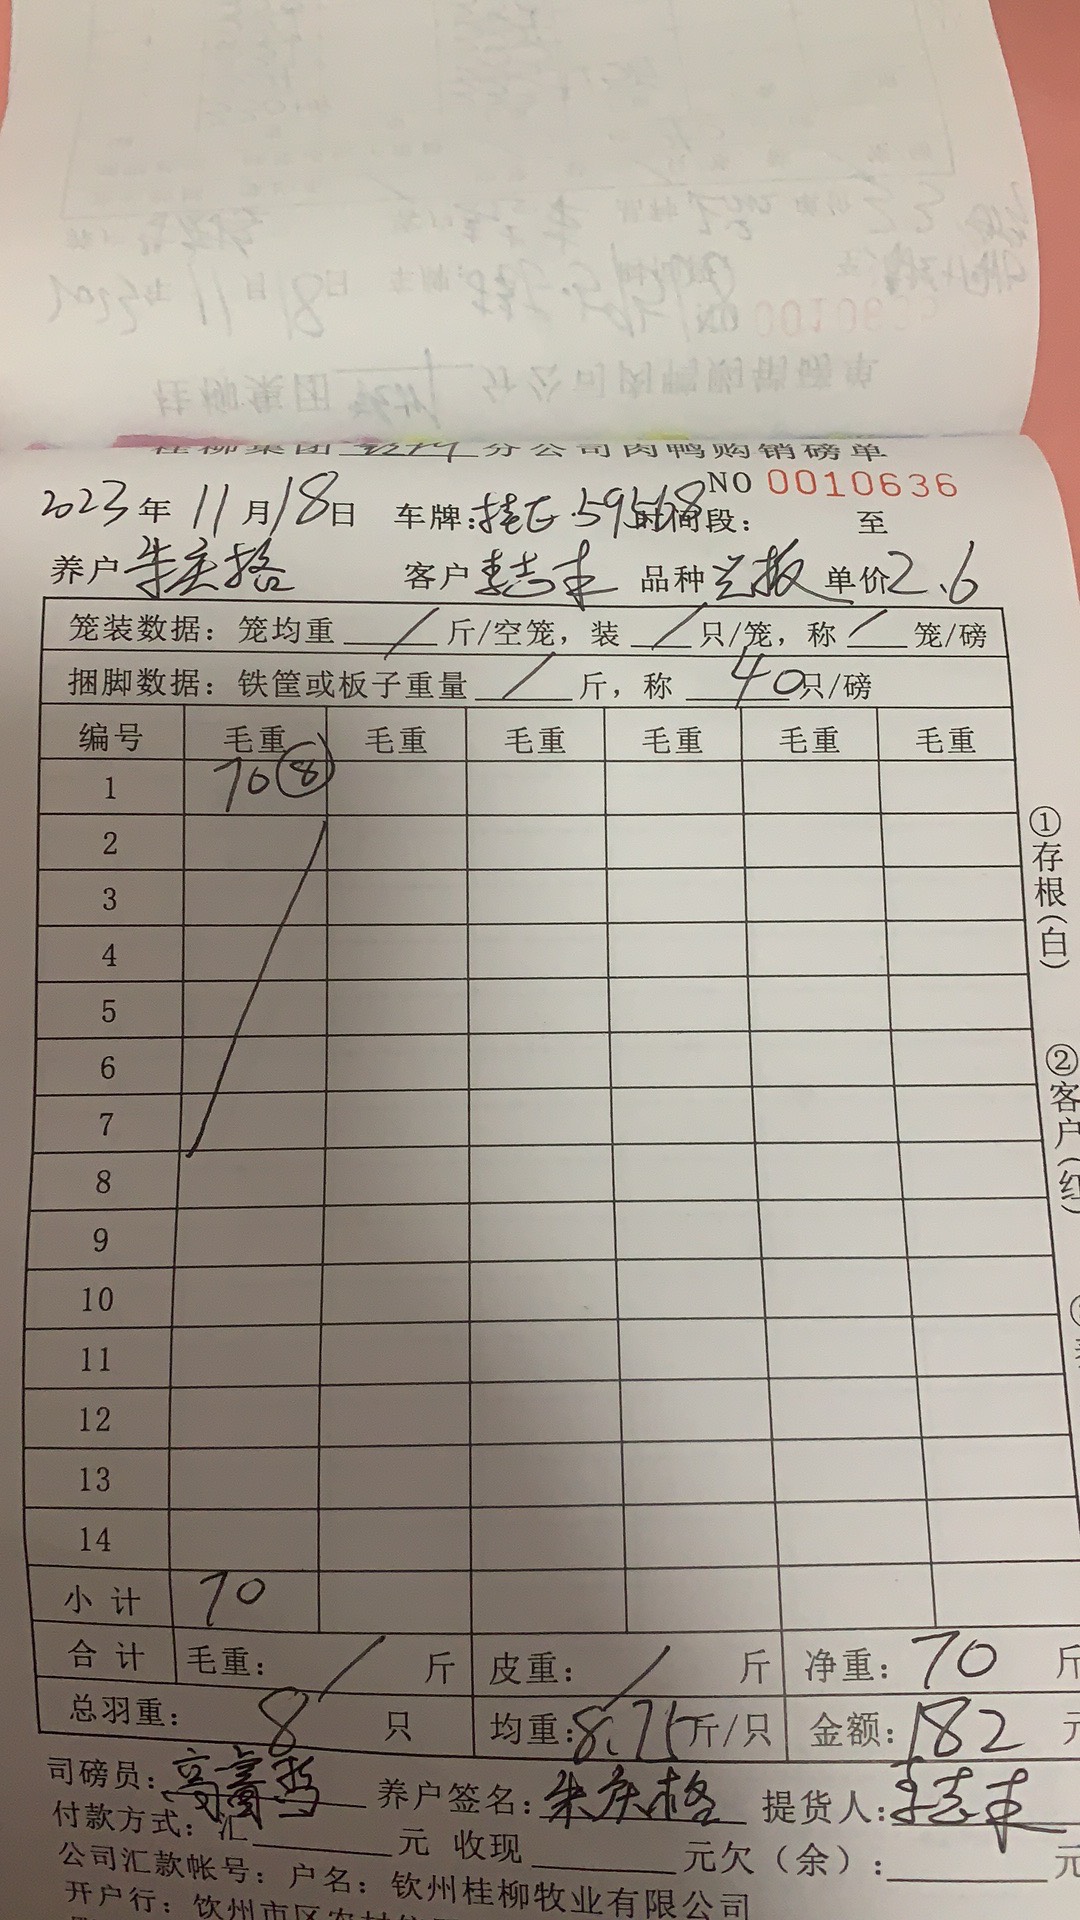 桂柳集团 钦州 分公司肉鸭购销磅单
NO 0010636
2023年11月18日 车牌:桂E·59568 时间段: 至
养户 朱庆格 客户 李志丰 品种 兰板 单价2.6
笼装数据：笼均重 / 斤/空笼，装 / 只/笼，称 / 笼/磅
捆脚数据：铁筐或板子重量 / 斤，称 40只/磅
编号 毛重 毛重 毛重 毛重 毛重 毛重
1 70 ⑧
2
3
4
5
6
7
8
9
10
11
12
13
14
小计 70
合计 毛重: / 斤 皮重: / 斤 净重: 70 斤
总羽重: 8 只 均重:8.75斤/只 金额:182 元
司磅员: 养户签名:朱庆格 提货人:李志丰
付款方式：汇 元 收现 元欠（余）: 元
公司汇款帐号：户名：钦州桂柳牧业有限公司
开户行：钦州市区农村
①存根(白)
②客户(红)